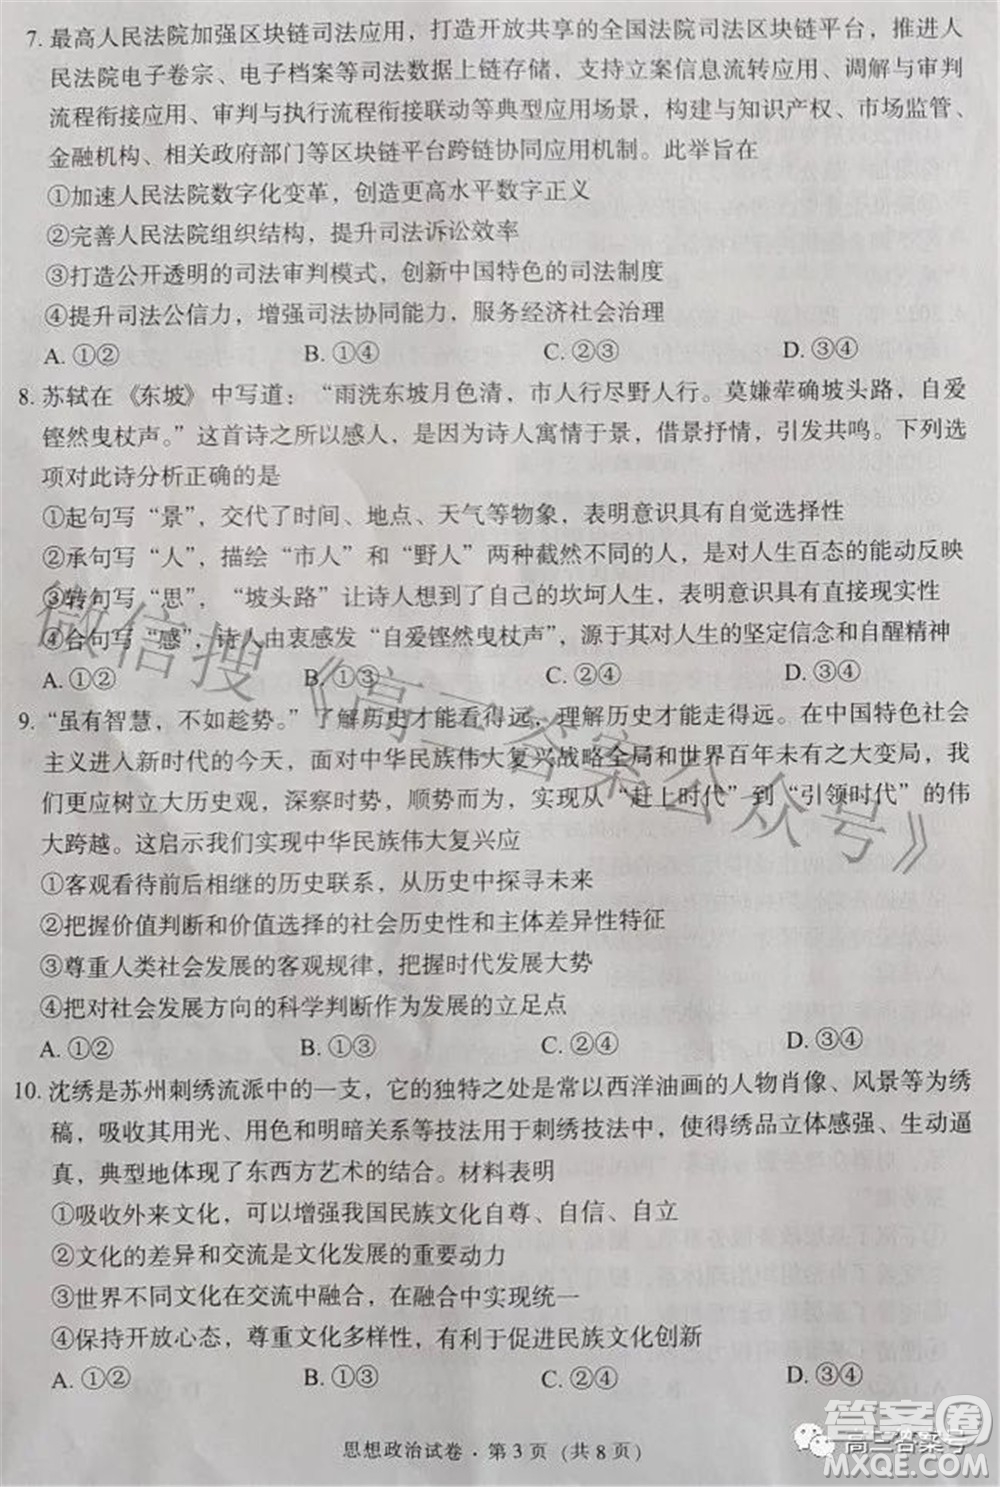 7. 最高人民法院加强区块链司法应用，打造开放共享的全国法院司法区块链平台，推进人
民法院电子卷宗、电子档案等司法数据上链存储，支持立案信息流转应用、调解与审判
流程衔接应用、审判与执行流程衔接联动等典型应用场景，构建与知识产权、市场监管、
金融机构、相关政府部门等区块链平台跨链协同应用机制。此举旨在
①加速人民法院数字化变革，创造更高水平数字正义
②完善人民法院组织结构，提升司法诉讼效率
③打造公开透明的司法审判模式，创新中国特色的司法制度
④提升司法公信力，增强司法协同能力，服务经济社会治理
A. ①② B. ①④ C. ②③ D. ③④
8. 苏轼在《东坡》中写道：“雨洗东坡月色清，市人行尽野人行。莫嫌荦确坡头路，自爱
铿然曳杖声。”这首诗之所以感人，是因为诗人寓情于景，借景抒情，引发共鸣。下列选
项对此诗分析正确的是
①起句写“景”，交代了时间、地点、天气等物象，表明意识具有自觉选择性
②承句写“人”，描绘“市人”和“野人”两种截然不同的人，是对人生百态的能动反映
③转句写“思”，“坡头路”让诗人想到了自己的坎坷人生，表明意识具有直接现实性
④合句写“感”，诗人由衷感发“自爱铿然曳杖声”，源于其对人生的坚定信念和自醒精神
A. ①② B. ①③ C. ②④ D. ③④
9. “虽有智慧，不如趁势。”了解历史才能看得远，理解历史才能走得远。在中国特色社会
主义进入新时代的今天，面对中华民族伟大复兴战略全局和世界百年未有之大变局，我
们更应树立大历史观，深察时势，顺势而为，实现从“赶上时代”到“引领时代”的伟
大跨越。这启示我们实现中华民族伟大复兴应
①客观看待前后相继的历史联系，从历史中探寻未来
②把握价值判断和价值选择的社会历史性和主体差异性特征
③尊重人类社会发展的客观规律，把握时代发展大势
④把对社会发展方向的科学判断作为发展的立足点
A. ①② B. ①③ C. ②④ D. ③④
10. 沈绣是苏州刺绣流派中的一支，它的独特之处是常以西洋油画的人物肖像、风景等为绣
稿，吸收其用光、用色和明暗关系等技法用于刺绣技法中，使得绣品立体感强、生动逼
真，典型地体现了东西方艺术的结合。材料表明
①吸收外来文化，可以增强我国民族文化自尊、自信、自立
②文化的差异和交流是文化发展的重要动力
③世界不同文化在交流中融合，在融合中实现统一
④保持开放心态，尊重文化多样性，有利于促进民族文化创新
A. ①② B. ①③ C. ②④ D. ③④
思想政治试卷·第 3 页（共 8 页）
微信搜《高三答案公众号》
高三答案号
答案圈
MXQE.COM